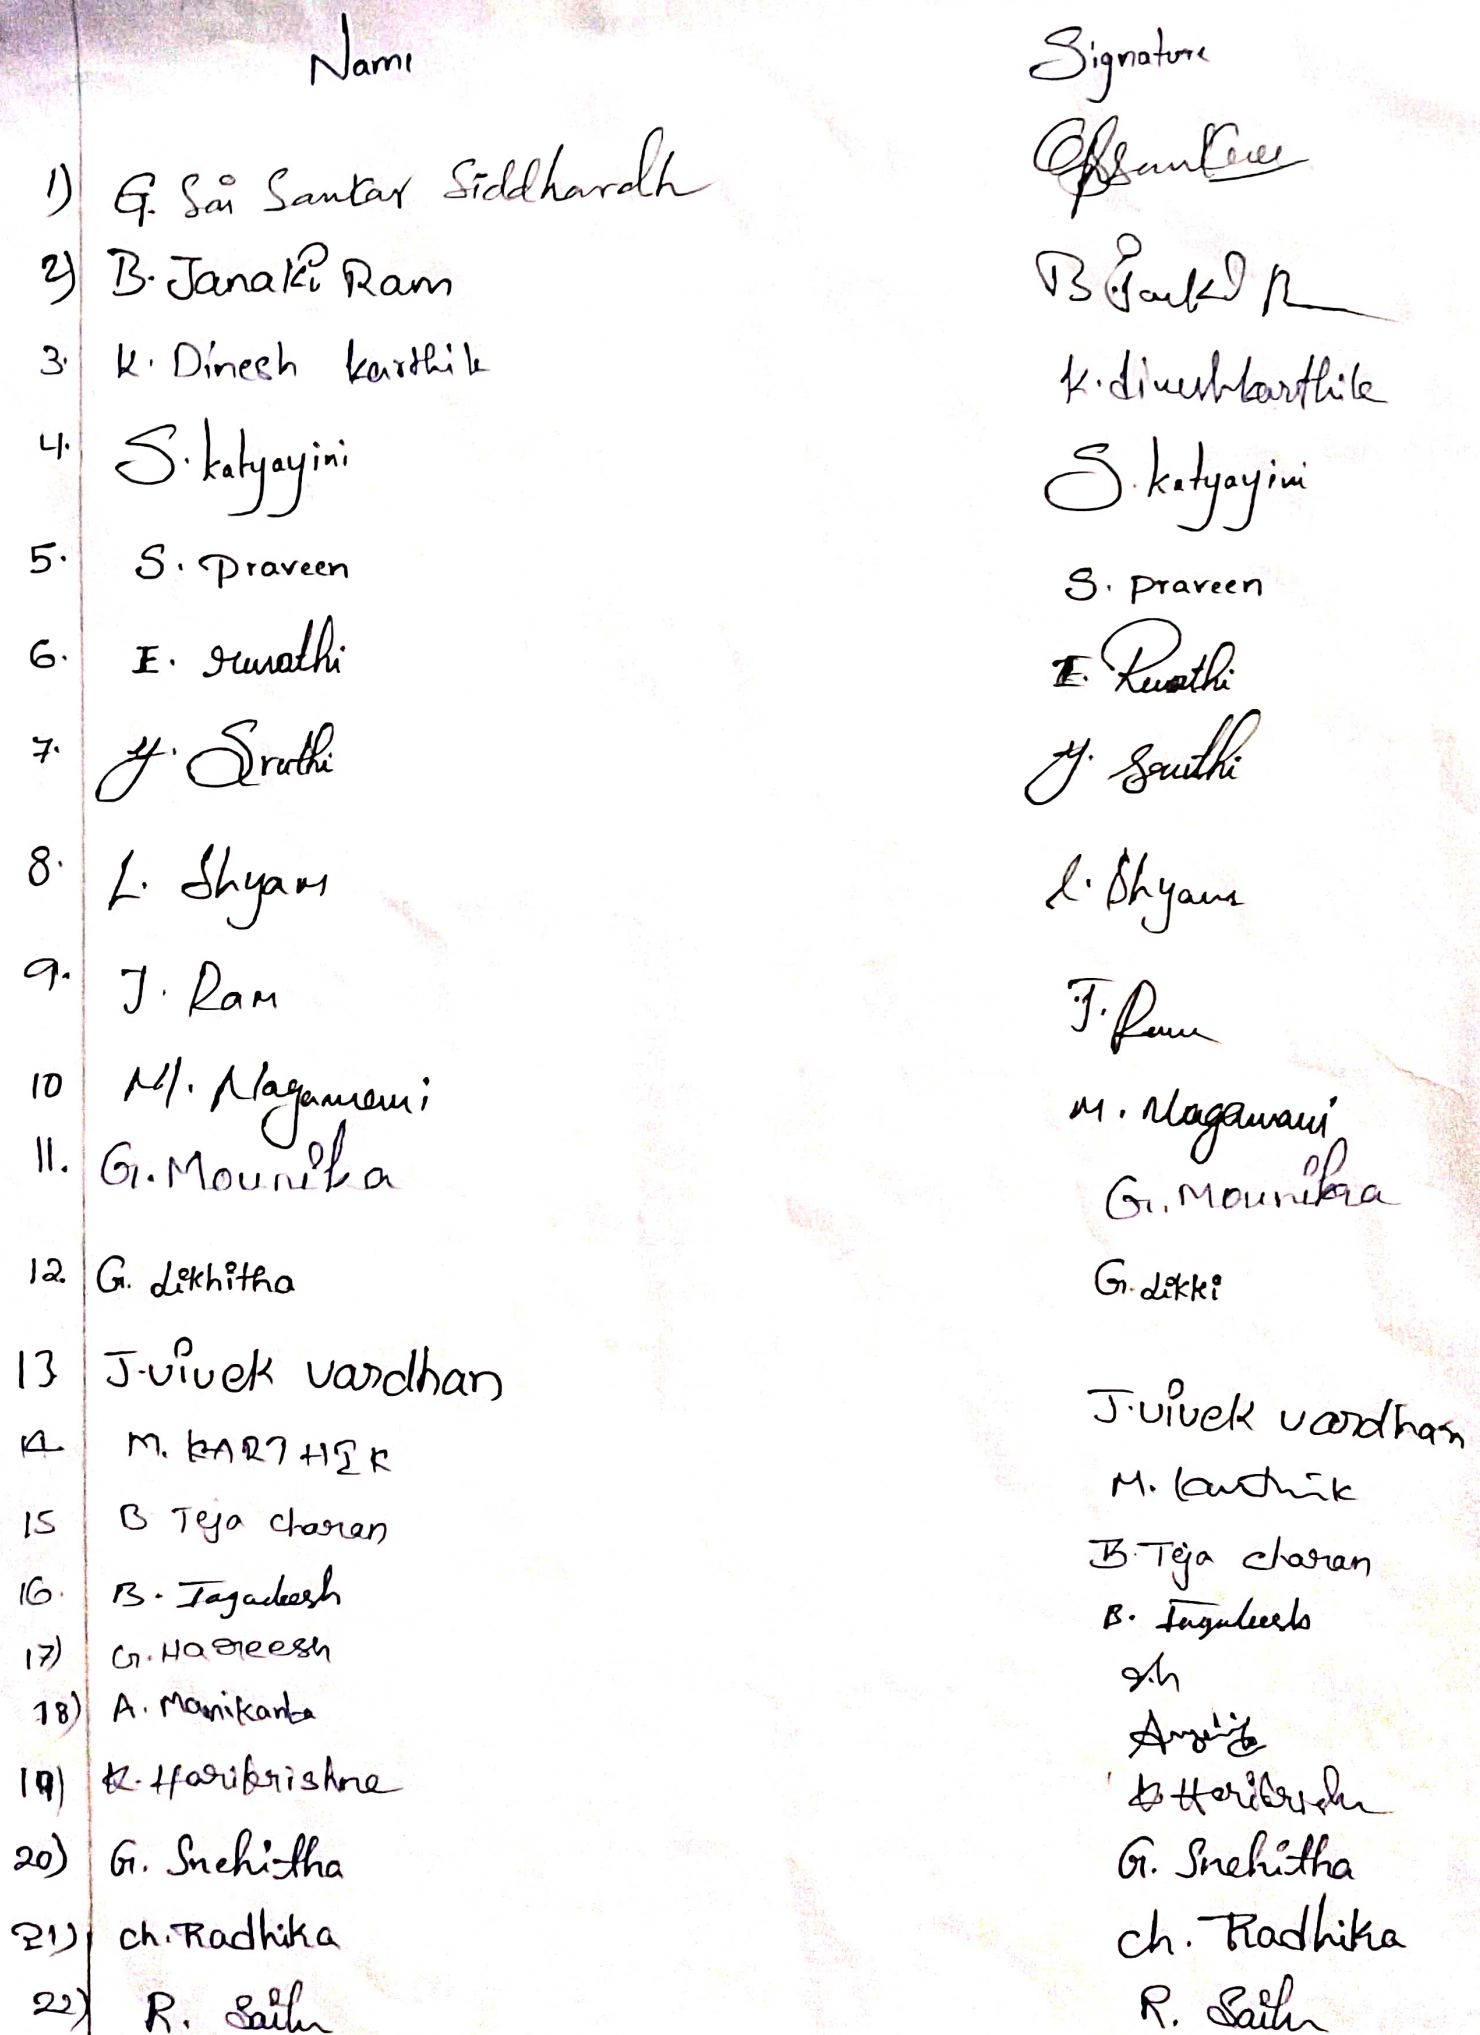 Name Signature
1) G. Sai Sankar Siddhardh
2) B. Janaki Ram B
3. K. Dinesh karthik K. dineshkarthik
4. S. katyayini S. katyayini
5. S. praveen S. praveen
6. E. revathi E. Revathi
7. Y. Sruthi Y. Sruthi
8. L. Shyam L. Shyam
9. J. Ram J. Ram
10 M. Nagamani M. Nagamani
11. G. Mounika G. Mounika
12. G. dikhitha G. dikki
13 J. vivek vardhan J. vivek vardhan
14 M. KARTHIK M. Karthik
15 B Teja charan B. Teja charan
16. B. Jagadeesh B. Jagadeesh
17) G. Hareesh
18) A. Manikanta
19) K. Harikrishna K Harikrishna
20) G. Snehitha G. Snehitha
21) ch. Radhika ch. Radhika
22) R. R.